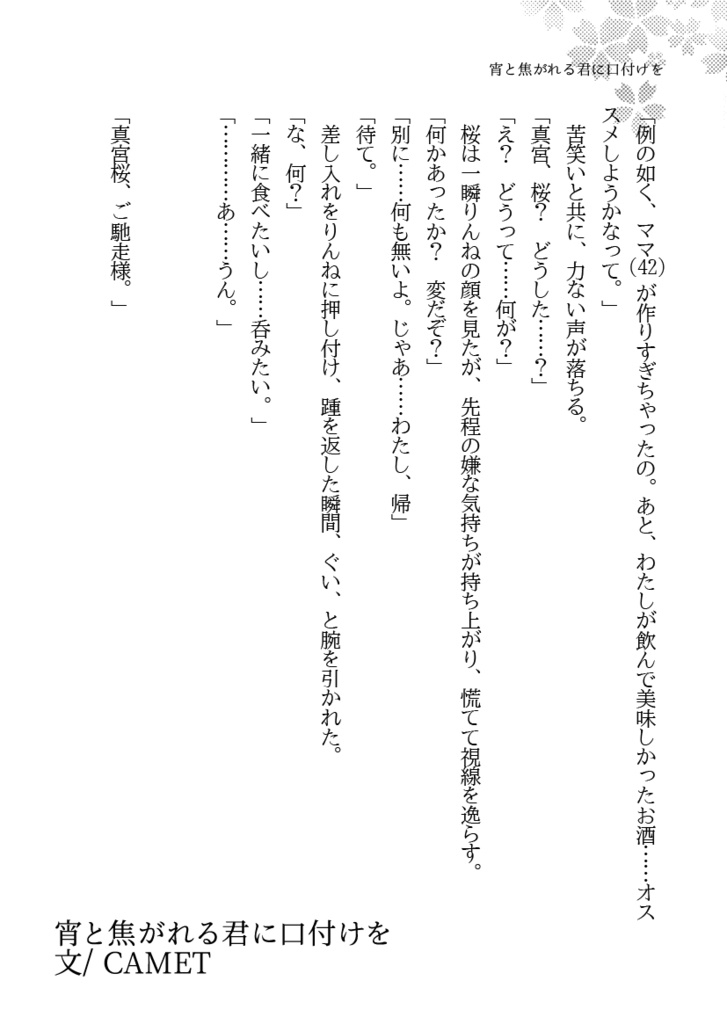 宵と焦がれる君に口付けを
「例の如く、ママ(42)が作りすぎちゃったの。あと、わたしが飲んで美味しかったお酒……オス
スメしようかなって。」
苦笑いと共に、力ない声が落ちる。
「真宮、桜?　どうした……?」
「え?　どうって……何が?」
桜は一瞬りんねの顔を見たが、先程の嫌な気持ちが持ち上がり、慌てて視線を逸らす。
「何かあったか?　変だぞ?」
「別に……何も無いよ。じゃあ……わたし、帰」
「待て。」
差し入れをりんねに押し付け、踵を返した瞬間、ぐい、と腕を引かれた。
「な、何?」
「一緒に食べたいし……呑みたい。」
「…………あ……うん。」
「真宮桜、ご馳走様。」
宵と焦がれる君に口付けを
文/ CAMET